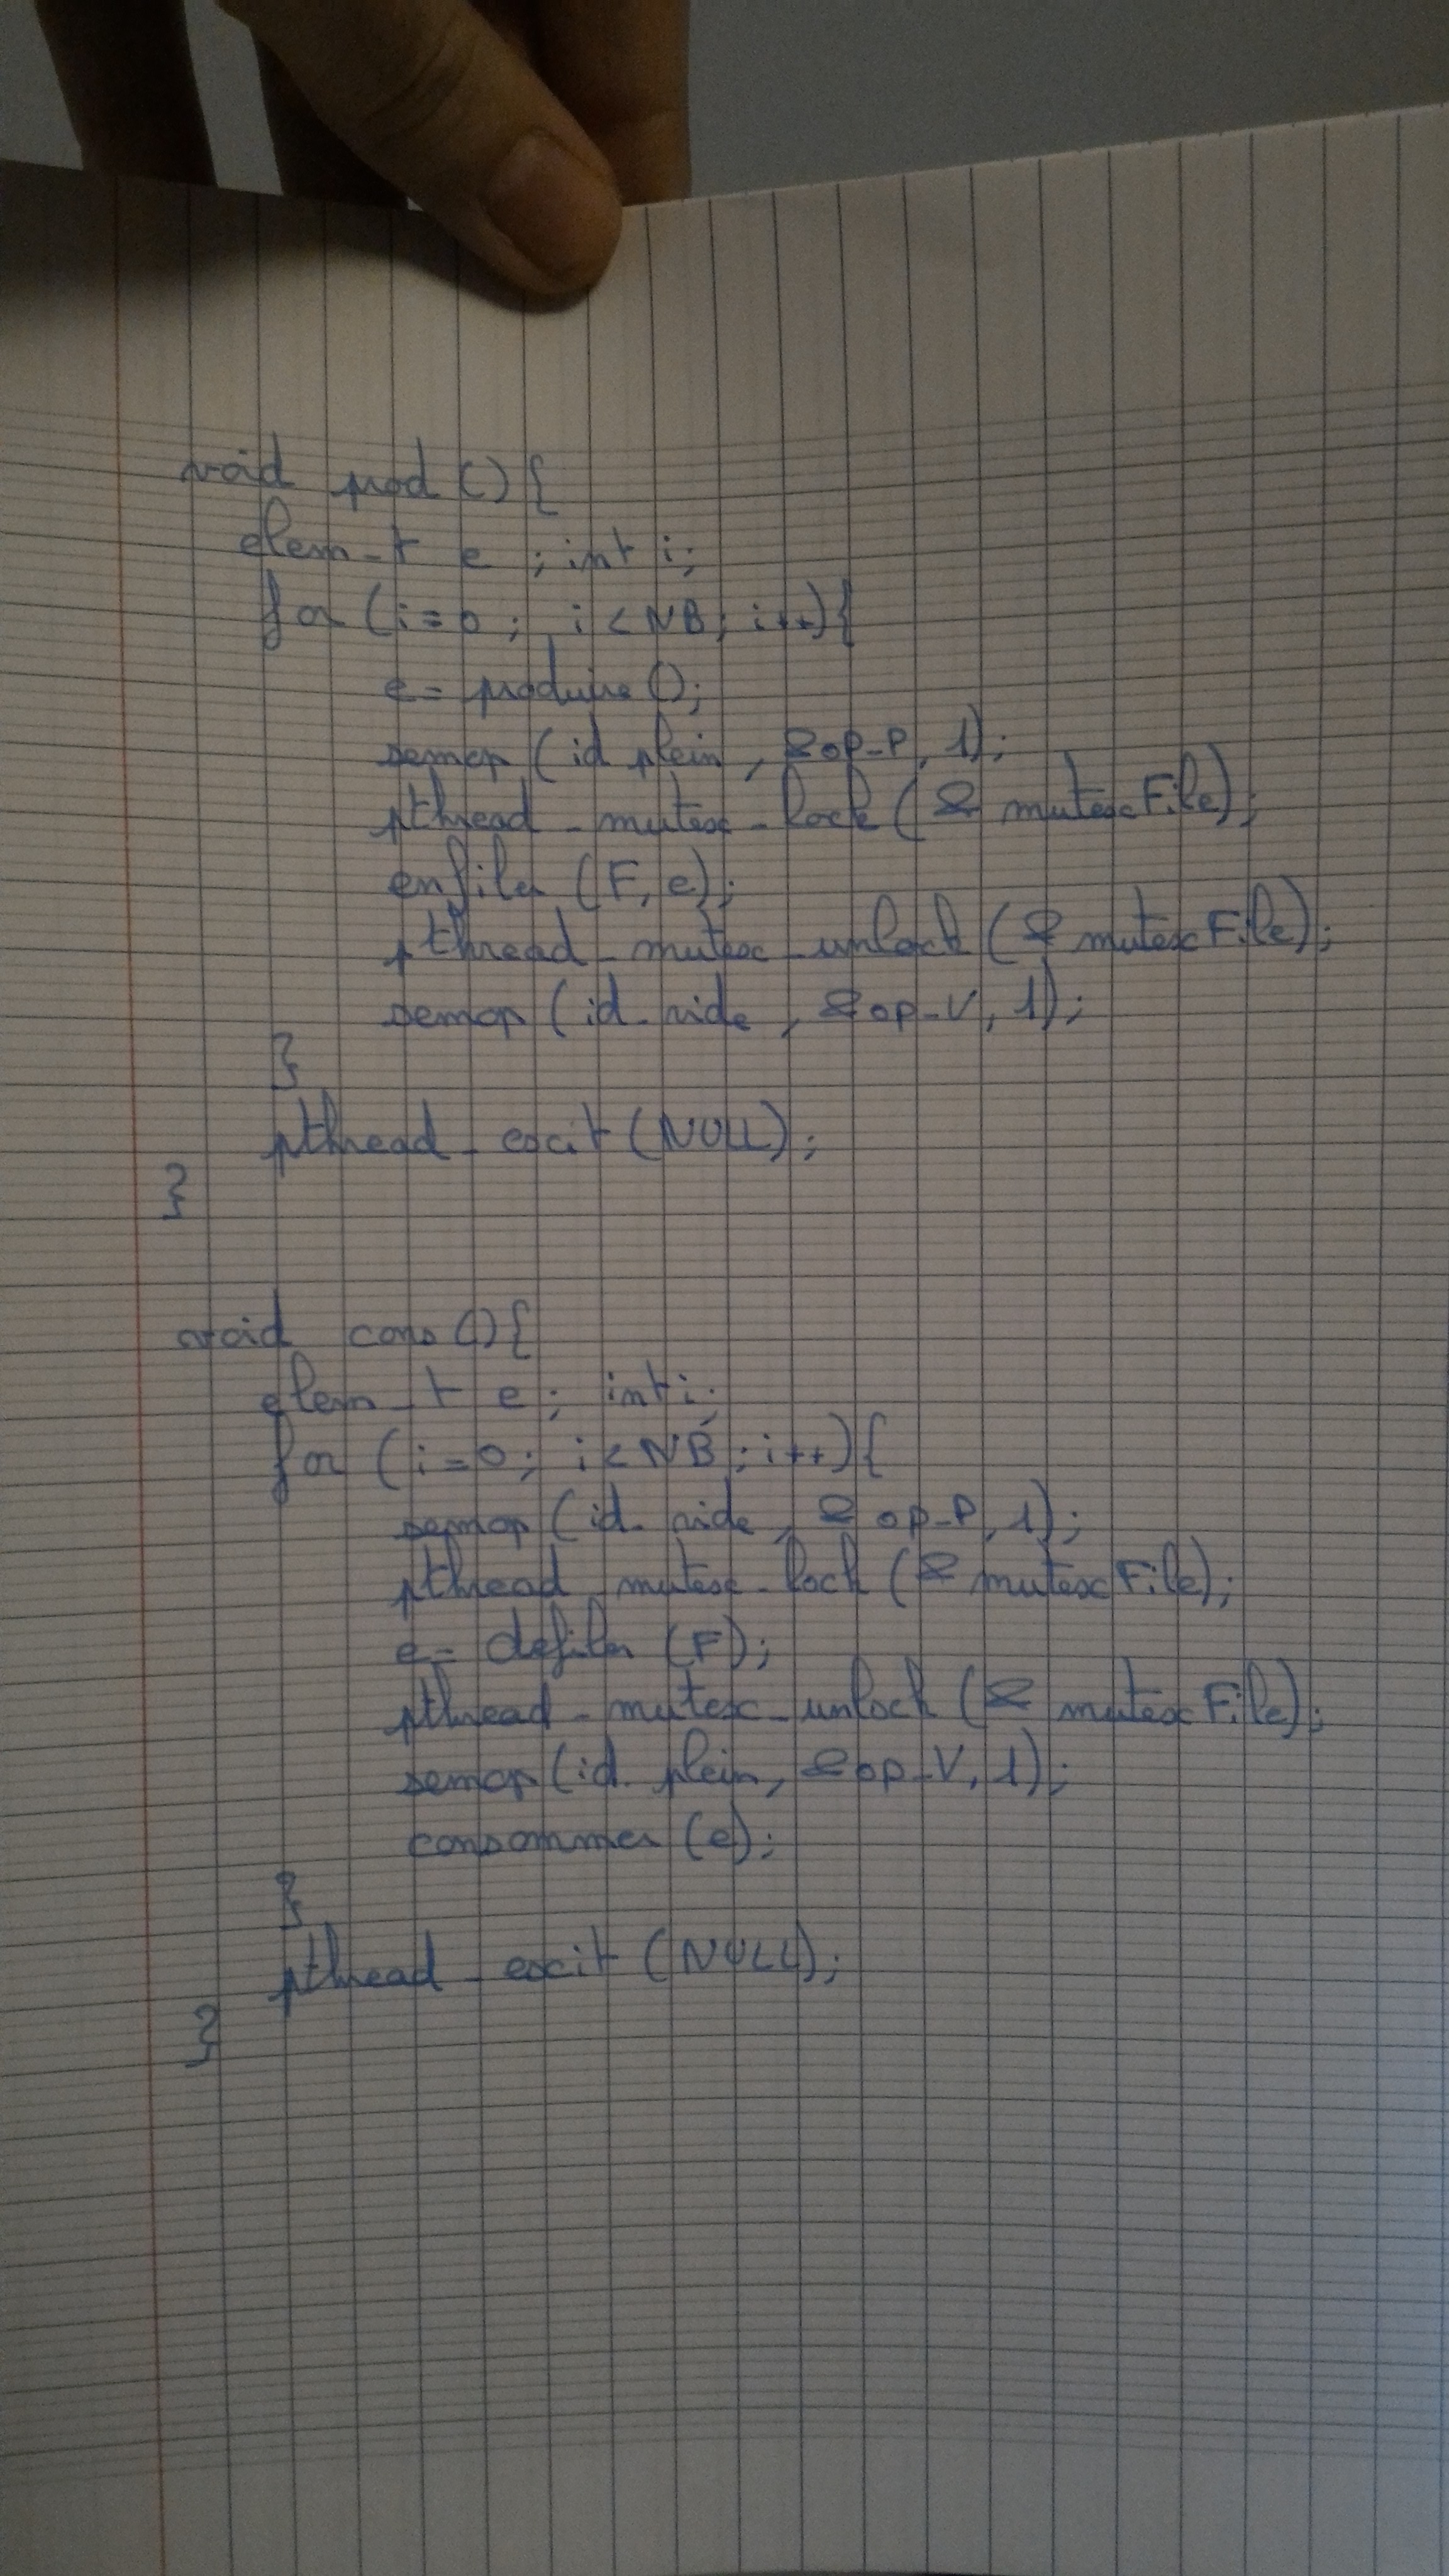 void prod () {
elem_t e ; int i;
for (i=0 ; i < NB; i++){
e = produire ();
semop (id_plein , &op_P, 1);
pthread_mutex_lock (& mutexFile);
enfiler (F, e);
pthread_mutex_unlock (& mutexFile);
semop (id_vide , &op_V, 1);
}
pthread_exit (NULL);
}
void cons () {
elem_t e; int i;
for (i=0; i < NB ; i++){
semop (id_vide , & op_P, 1);
pthread_mutex_lock (& mutexFile);
e = defiler (F);
pthread_mutex_unlock (& mutexFile);
semop (id_plein, &op_V, 1);
consommer (e);
}
pthread_exit (NULL);
}